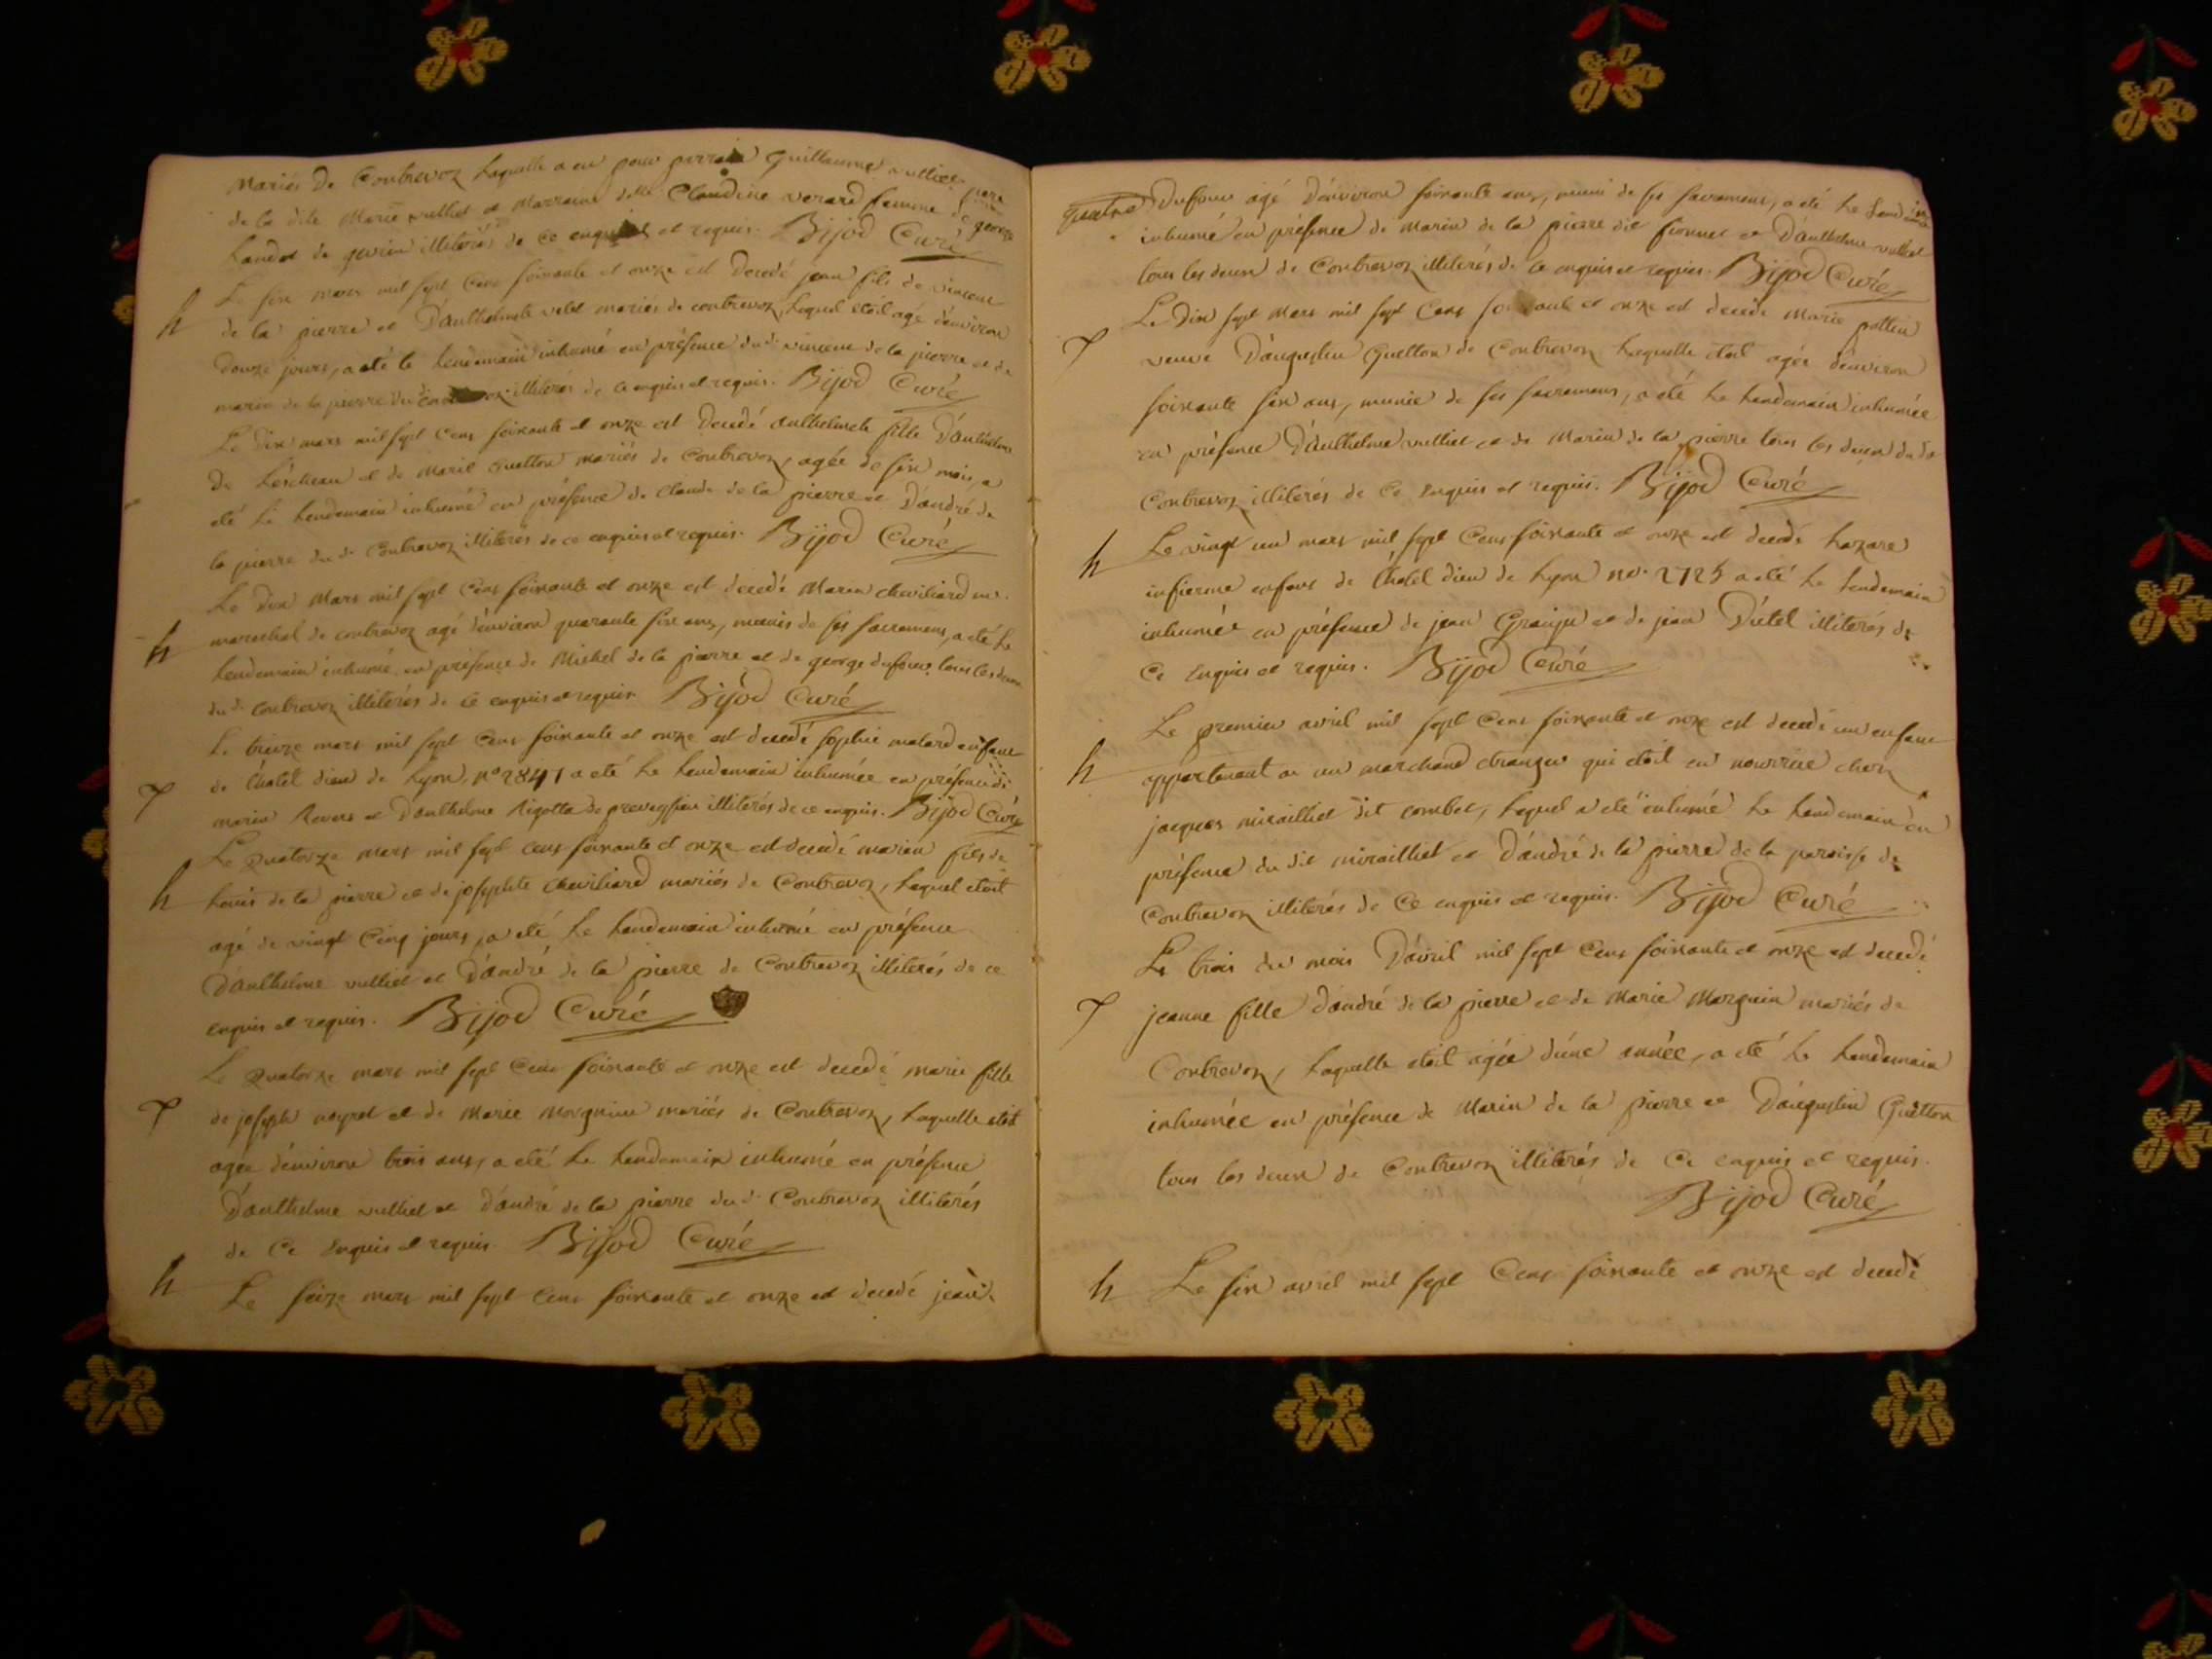 Mariés De Contrevoz Laquelle a eu pour parrain Guillaume vulliet pere
de la dite Marie vulliet et Marraine delle Claudine verard femme de george
handot de illiterés de ce enquis et requis. Bijod Curé
h Le six mars mil sept cens soixante et onze est decedé jean fils de vincent
de la pierre et D'anthelmete velet mariés de contrevoz, lequel etoit agé d'environ
douze jours, a eté le lendemain inhumé en présence dud. vincent de la pierre et de
marin de la pierre dud. illiterés de ce enquis et requis. Bijod Curé
Le dix mars mil sept cens soixante et onze est decedé anthelmete fille D'anthelme
De et de Marie Guetton mariés de Contrevoz, agée de six mois, a
eté le lendemain inhumé en présence de Claude de la pierre et D'andré de
la pierre dud. Contrevoz illiterés de ce enquis et requis. Bijod Curé
Le dix Mars mil sept cens soixante et onze est decedé Marin cheviliard
h marechal de contrevoz agé d'environ quarante six ans, munis de ses sacremens, a eté le
lendemain inhumé en présence de Michel de la pierre et de george dufour tous les deux
dud. contrevoz illiterés de ce enquis et requis Bijod Curé
Le treize mars mil sept cens soixante et onze est decedé sophie malard enfant
de l'hotel dieu de Lyon, no 2841 a eté le lendemain inhumée en présence de
f marin Revers et D'anthelme Rigottoz de preveyssieu illiterés de ce enquis. Bijod Curé
Le quatorze mars mil sept cens soixante et onze est decedé marin fils de
h Louis de la pierre et de josephte cheviliard mariés de Contrevoz, lequel etoit
agé de vingt cinq jours, a eté le lendemain inhumé en présence
D'anthelme vulliet et D'andré de la pierre de Contrevoz illiterés de ce
enquis et requis. Bijod Curé
Le quatorze mars mil sept cens soixante et onze est decedé marie fille
f de joseph neyret et de Marie Morgnieu mariés de Contrevoz, laquelle etoit
agée d'environ trois ans, a eté le lendemain inhumé en présence
D'anthelme vulliet et D'andré de la pierre dud. Contrevoz illiterés
de ce enquis et requis. Bijod Curé
h Le seize mars mil sept cens soixante et onze est decedé jean
Dufour agé d'environ soixante ans, muni de ses sacremens, a eté le lendemain
inhumé en présence de Marin de la pierre dit et D'anthelme vulliet
tous les deux de Contrevoz illiterés de ce enquis et requis. Bijod Curé
Le dix sept Mars mil sept cens soixante et onze est decedé Marie pottin
f veuve D'augustin Guetton de Contrevoz laquelle etoit agée d'environ
soixante six ans, munie de ses sacremens, a eté le lendemain inhumée
en présence D'anthelme vulliet et de Marin de la pierre tous les deux dud.
Contrevoz illiterés de ce enquis et requis. Bijod Curé
h Le vingt un mars mil sept cens soixante et onze est decedé Lazare
infierme enfant de l'hotel dieu de Lyon no. 2725 a eté le lendemain
inhumé en présence de jean Granju et de jean Dutel illiterés de
ce enquis et requis. Bijod Curé
Le premier avril mil sept cens soixante et onze est decedé un enfant
h appartenant a un marchand etranger qui etoit en nourrice chez
jacques mirailliet dit combet, lequel a eté inhumé le lendemain en
présence du dit mirailliet et D'andré de la pierre de la paroisse de
Contrevoz illiterés de ce enquis et requis. Bijod Curé
Le trois du mois D'avril mil sept cens soixante et onze est decedé
f jeanne fille D'andré de la pierre et de Marie Marguin mariés de
Contrevoz, laquelle etoit agée d'une année, a eté le lendemain
inhumée en présence de Marin de la pierre et D'augustin Guetton
tous les deux de Contrevoz illiterés de ce enquis et requis.
Bijod Curé
h Le six avril mil sept cens soixante et onze est decedé